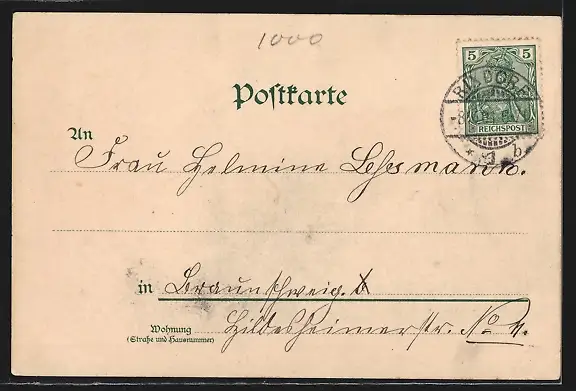 1000
5 5
REICHSPOST
Postkarte
An
Frau Helmine Lehsmann.
b
in Braunschweig.
Wohnung Hildesheimerstr. No
(Straße und Hausnummer)